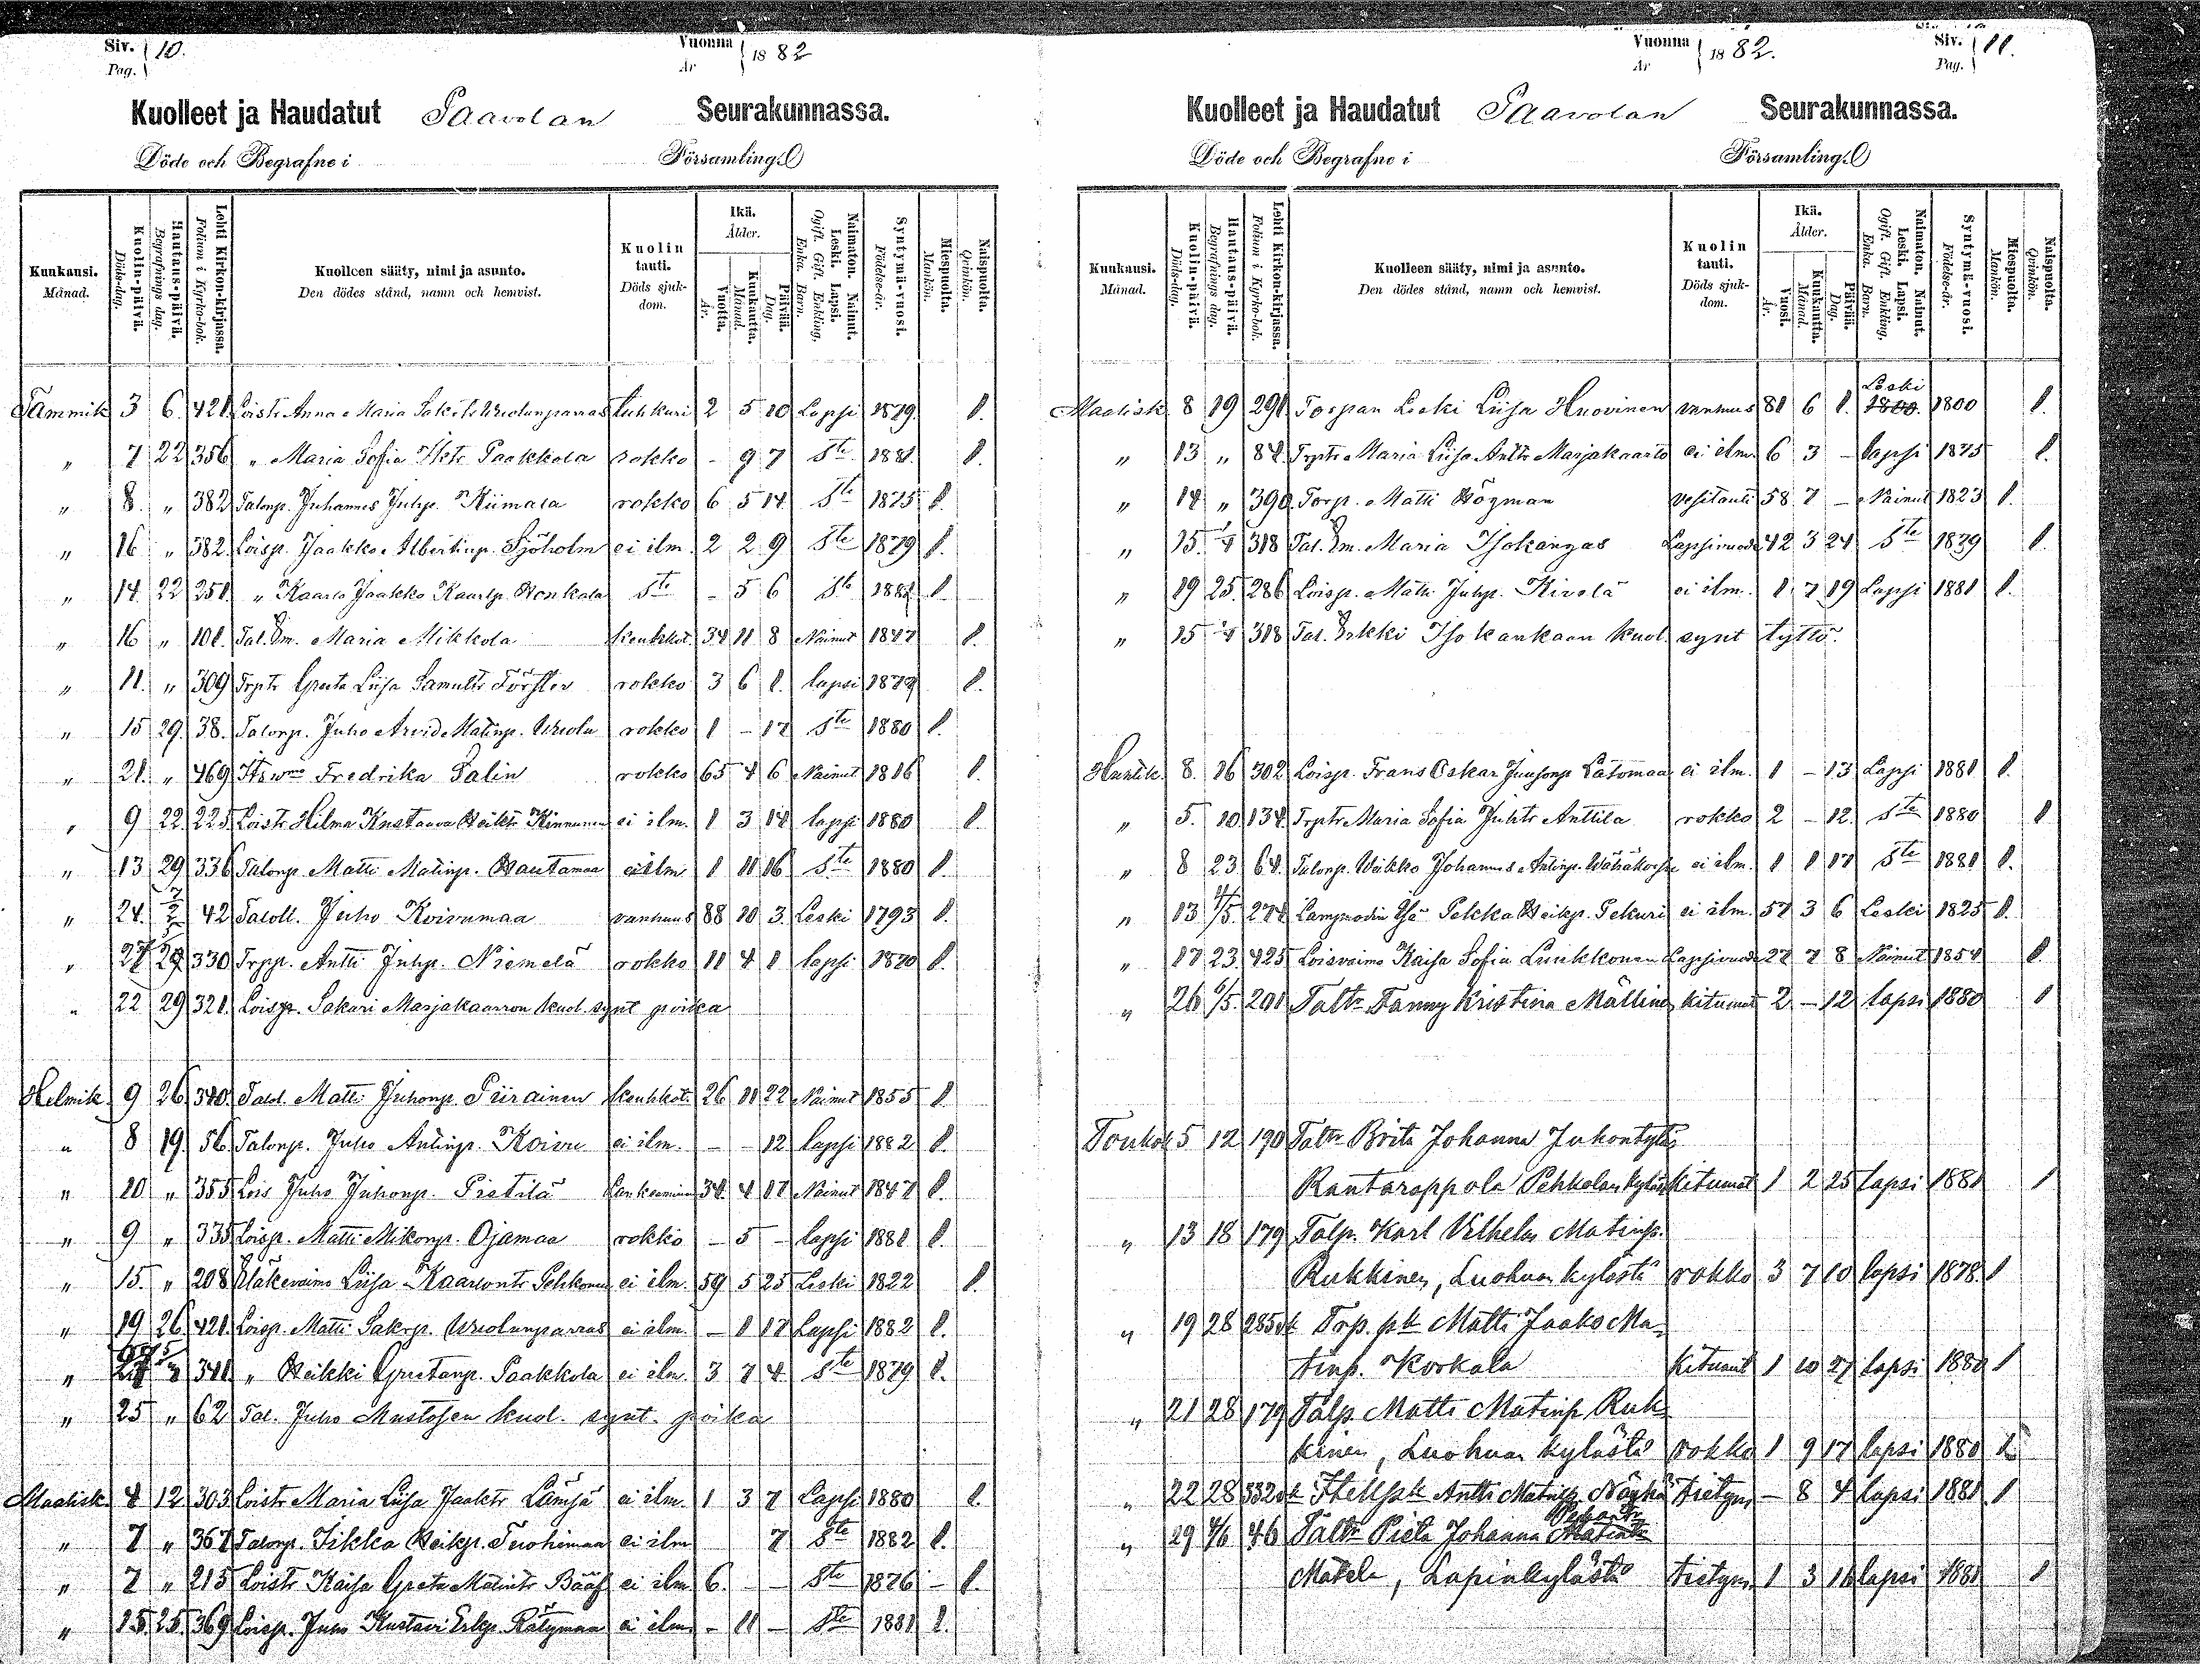 Siv. 10.
Pag.
Vuonna 1882
År
Kuolleet ja Haudatut Paavolan Seurakunnassa.
Döde och Begrafne i Församling.
Kuukausi. Månad.
Kuolin-päivä. Döds-dag.
Hautaus-päivä. Begrafnings dag.
Lehti Kirkon-kirjassa. Folium i Kyrko-bok.
Kuolleen sääty, nimi ja asunto.
Den dödes stånd, namn och hemvist.
Kuolin tauti. Döds sjukdom.
Ikä. Ålder.
Vuotta. År. Kuukautta. Månad. Päivää. Dag.
Naimaton. Nainut. Leski. Lapsi. Ogift. Gift. Enkling. Enka. Barn.
Syntymä-vuosi. Födelse-år.
Miespuolta. Mankön.
Naispuolta. Qvinkön.
Tammik 3 6. 421. Loistr Anna Maria tuhkuri 2 5 10 Lapsi 1879. 1.
" 7 22 356 " Maria Sofia Paakkola rokko - 9 7 Ste 1881. 1.
" 8. " 382 Talonp. Juhannes Juhp. Kiimala rokko 6 5 14. Ste 1875 1.
" 16 " 382. Loisp. Jaakko Albertinp. Sjöholm ei ilm. 2 2 9 Ste 1879 1.
" 14 22 251. " Kaarlo Jaakko Kaarlp. Honkala Ste - 5 6 Ste 1881 1.
" 16 " 101. Tal. Em. Maria Mikkola keuhkot. 34 11 8 Nainut 1847 1.
" 11. " 309 Trptr Greeta Liisa Samultr Förster rokko 3 6 1. lapsi 1879 1.
" 15 29. 38. Talonp. Juho Arvid Matinp. Uvola rokko 1 - 17 Ste 1880 1.
" 21. " 469 Fredrika Salin rokko 65 4 6 Nainut 1816 1.
" 9 22. 225. Loistr Hilma Kustaava Heiktr Kinnunen ei ilm. 1 3 14 lapsi 1880 1.
" 13 29 336 Talonp. Matti Matinp. Hautamaa ei ilm 1 11 16 Ste 1880 1.
" 24. 42 Taloll. Juho Koivumaa vanhuus 88 10 3. Leski 1793 1.
" 27 29 330 Trpp. Antti Juhp. Niemelä rokko 11 4 1 lapsi 1870 1.
" 22 29 321. Loisp. Sakari Marjakaarron kuol. synt poika
Helmik. 9 26 340. Talol. Matti Juhonp. Piirainen keuhkot. 26 11 22 Nainut 1855 1.
" 8 19. 56. Talonp. Juho Antinp. Koivu ei ilm. - - 12 lapsi 1882 1.
" 10 " 355 Lois Juho Juhonp. Pistilä 34. 4 17 Nainut 1847 1.
" 9 " 335 Loisp. Matti Mikonp. Ojamaa rokko - 5 - lapsi 1881 1.
" 15. " 208 Eläkevaimo Liisa Kaarlontr Pehkonen ei ilm. 59 5 25 Leski 1822 1.
" 19 26 421. Loisp. Matti Sakrp. ei ilm. - 1 17 Lapsi 1882 1.
" 341 " Heikki Gustanp. Paakkola ei ilm. 3 7 4. Ste 1879 1.
" 25 " 62 Tal. Juho Mustosen kuol. synt. poika
Maalisk. 4 12 303 Loistr Maria Liisa Jaaktr Lämsä ei ilm. 1 3 7 Lapsi 1880 1.
" 7 " 367 Talonp. Iikka Heikp. Tuohimaa ei ilm 7 Ste 1882 1.
" 7 " 215 Loistr Kaisa Greta Matintr Bääf ei ilm 6. - - Ste 1876 - 1.
" 15. 25. 369 Loisp. Juho Kustavi Erkp. Rätymaa ei ilm - 11 - Ste 1881 1.
Vuonna 1882.
År
Siv. 11.
Pag.
Kuolleet ja Haudatut Paavolan Seurakunnassa.
Döde och Begrafne i Församling.
Kuukausi. Månad.
Kuolin-päivä. Döds-dag.
Hautaus-päivä. Begrafnings dag.
Lehti Kirkon-kirjassa. Folium i Kyrko-bok.
Kuolleen sääty, nimi ja asunto.
Den dödes stånd, namn och hemvist.
Kuolin tauti. Döds sjukdom.
Ikä. Ålder.
Vuosi. År. Kuukautta. Månad. Päivää. Dag.
Naimaton. Nainut. Leski. Lapsi. Ogift. Gift. Enkling. Enka. Barn.
Syntymä-vuosi. Födelse-år.
Miespuolta. Mankön.
Naispuolta. Qvinkön.
Maalisk. 8 19 291. Torpan Leski Liisa Huovinen vanhuus 81 6 1. Leski 1800. 1800 1.
" 13 " 84. Trptr Maria Liisa Anttr Marjakaarto ei ilm. 6 3 - lapsi 1875 1.
" 14 " 390. Torp. Matti Högman vesitauti 58 7 - Nainut 1823 1.
" 15. 1/4 318 Tal. Em. Maria Isokangas Lapsivuode 42 3 24 Ste 1839 1.
" 19 25. 286 Loisp. Matti Juhp. Kivelä ei ilm. 1. 7 19 Lapsi 1881 1.
" 15 1/4 318 Tal. Erkki Isokankaan kuol. synt tyttö.
Huhtik. 8. 16 302 Loisp. Frans Oskar Juusonp Latomaa ei ilm. 1 - 13 Lapsi 1881 1.
" 5. 10 134. Trptr Maria Sofia Juhtr Anttila rokko 2 - 12. Ste 1880 1
" 8 23. 64. Talonp. Weikko Johannes Antinp. ei ilm. 1 1 17 Ste 1881 1.
" 13 274 Pekka Heikp. Pekuri ei ilm. 57 3 6 Leski 1825 1.
" 17 23. 425 Loisvaimo Kaisa Sofia Luukkonen Lapsivuode 27 7 8 Nainut 1854 1.
" 26 6/5. 201 Taltr Fanny Kristina Mällinen kitumat 2 - 12 lapsi 1880 1
Toukok 5 12 190 Taltr Brita Johanna Juhontytär
Rantarappola Pehkolan kylästä kitumat 1 2 25 lapsi 1881 1
" 13 18 179 Talp. Karl Vilhelm Matinp.
Rukkinen, Luohuan kylästä rokko 3 7 10 lapsi 1878. 1
" 19 28 285 Trp. pk Matti Jaako Ma-
tinp. Korkala kitumat 1 10 27 lapsi 1880 1
" 21 28 179 Talp. Matti Matinp Ruk-
kinen, Luohuan kylästä rokko 1 9 17 lapsi 1880 1
" 22 28 332 Antti Matinp. Näyhä tietym. - 8 4 lapsi 1881 1
" 29 4/6 46 Taltr Pieta Johanna
Matela, Lapinkylästä tietym. 1 3 16 lapsi 1881 1